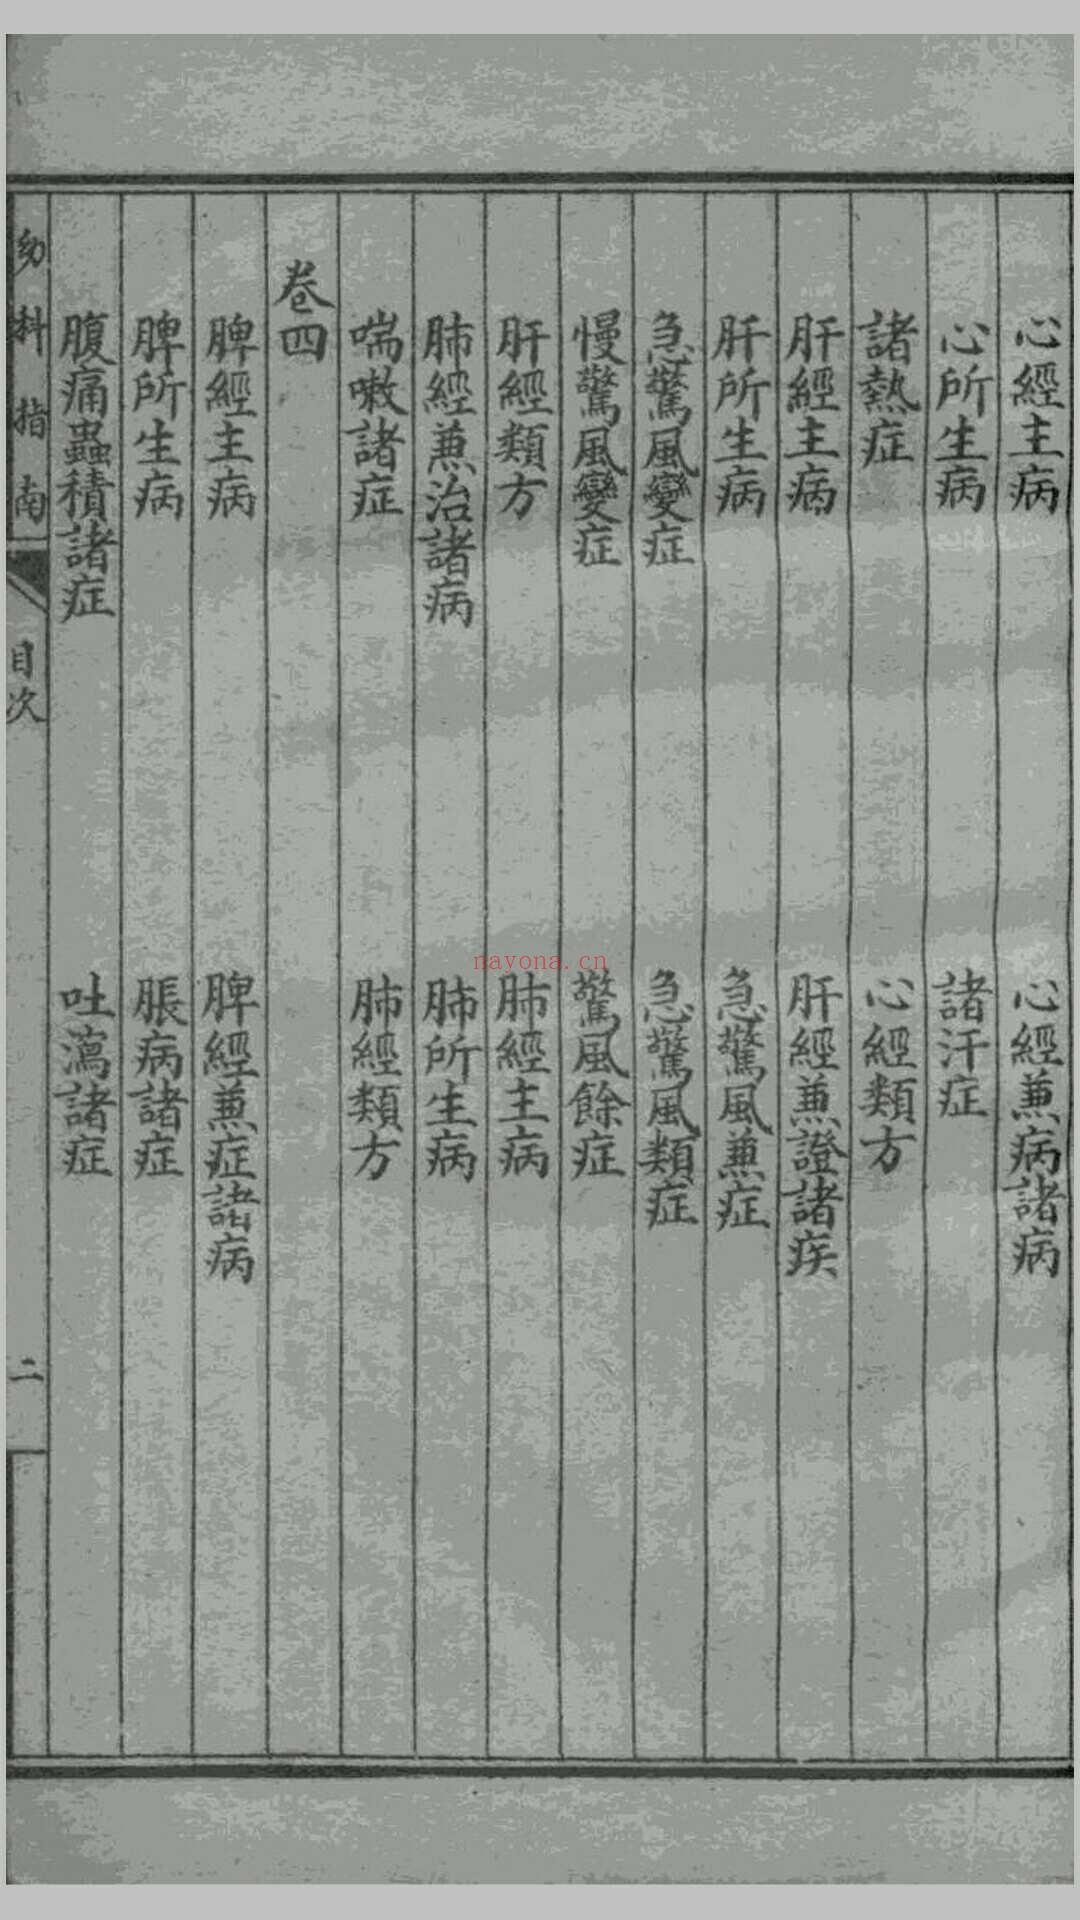 心經主病　心經兼病諸病
心所生病　諸汗症
諸熱症　心經類方
肝經主病　肝經兼證諸疾
肝所生病　急驚風兼症
急驚風變症　急驚風類症
慢驚風變症　驚風餘症
肝經類方　肺經主病
肺經兼治諸病　肺所生病
喘嗽諸症　肺經類方
卷四
脾經主病　脾經兼症諸病
脾所生病　脹病諸症
腹痛蟲積諸症　吐瀉諸症
幼科指南　目次　二
nayona.cn